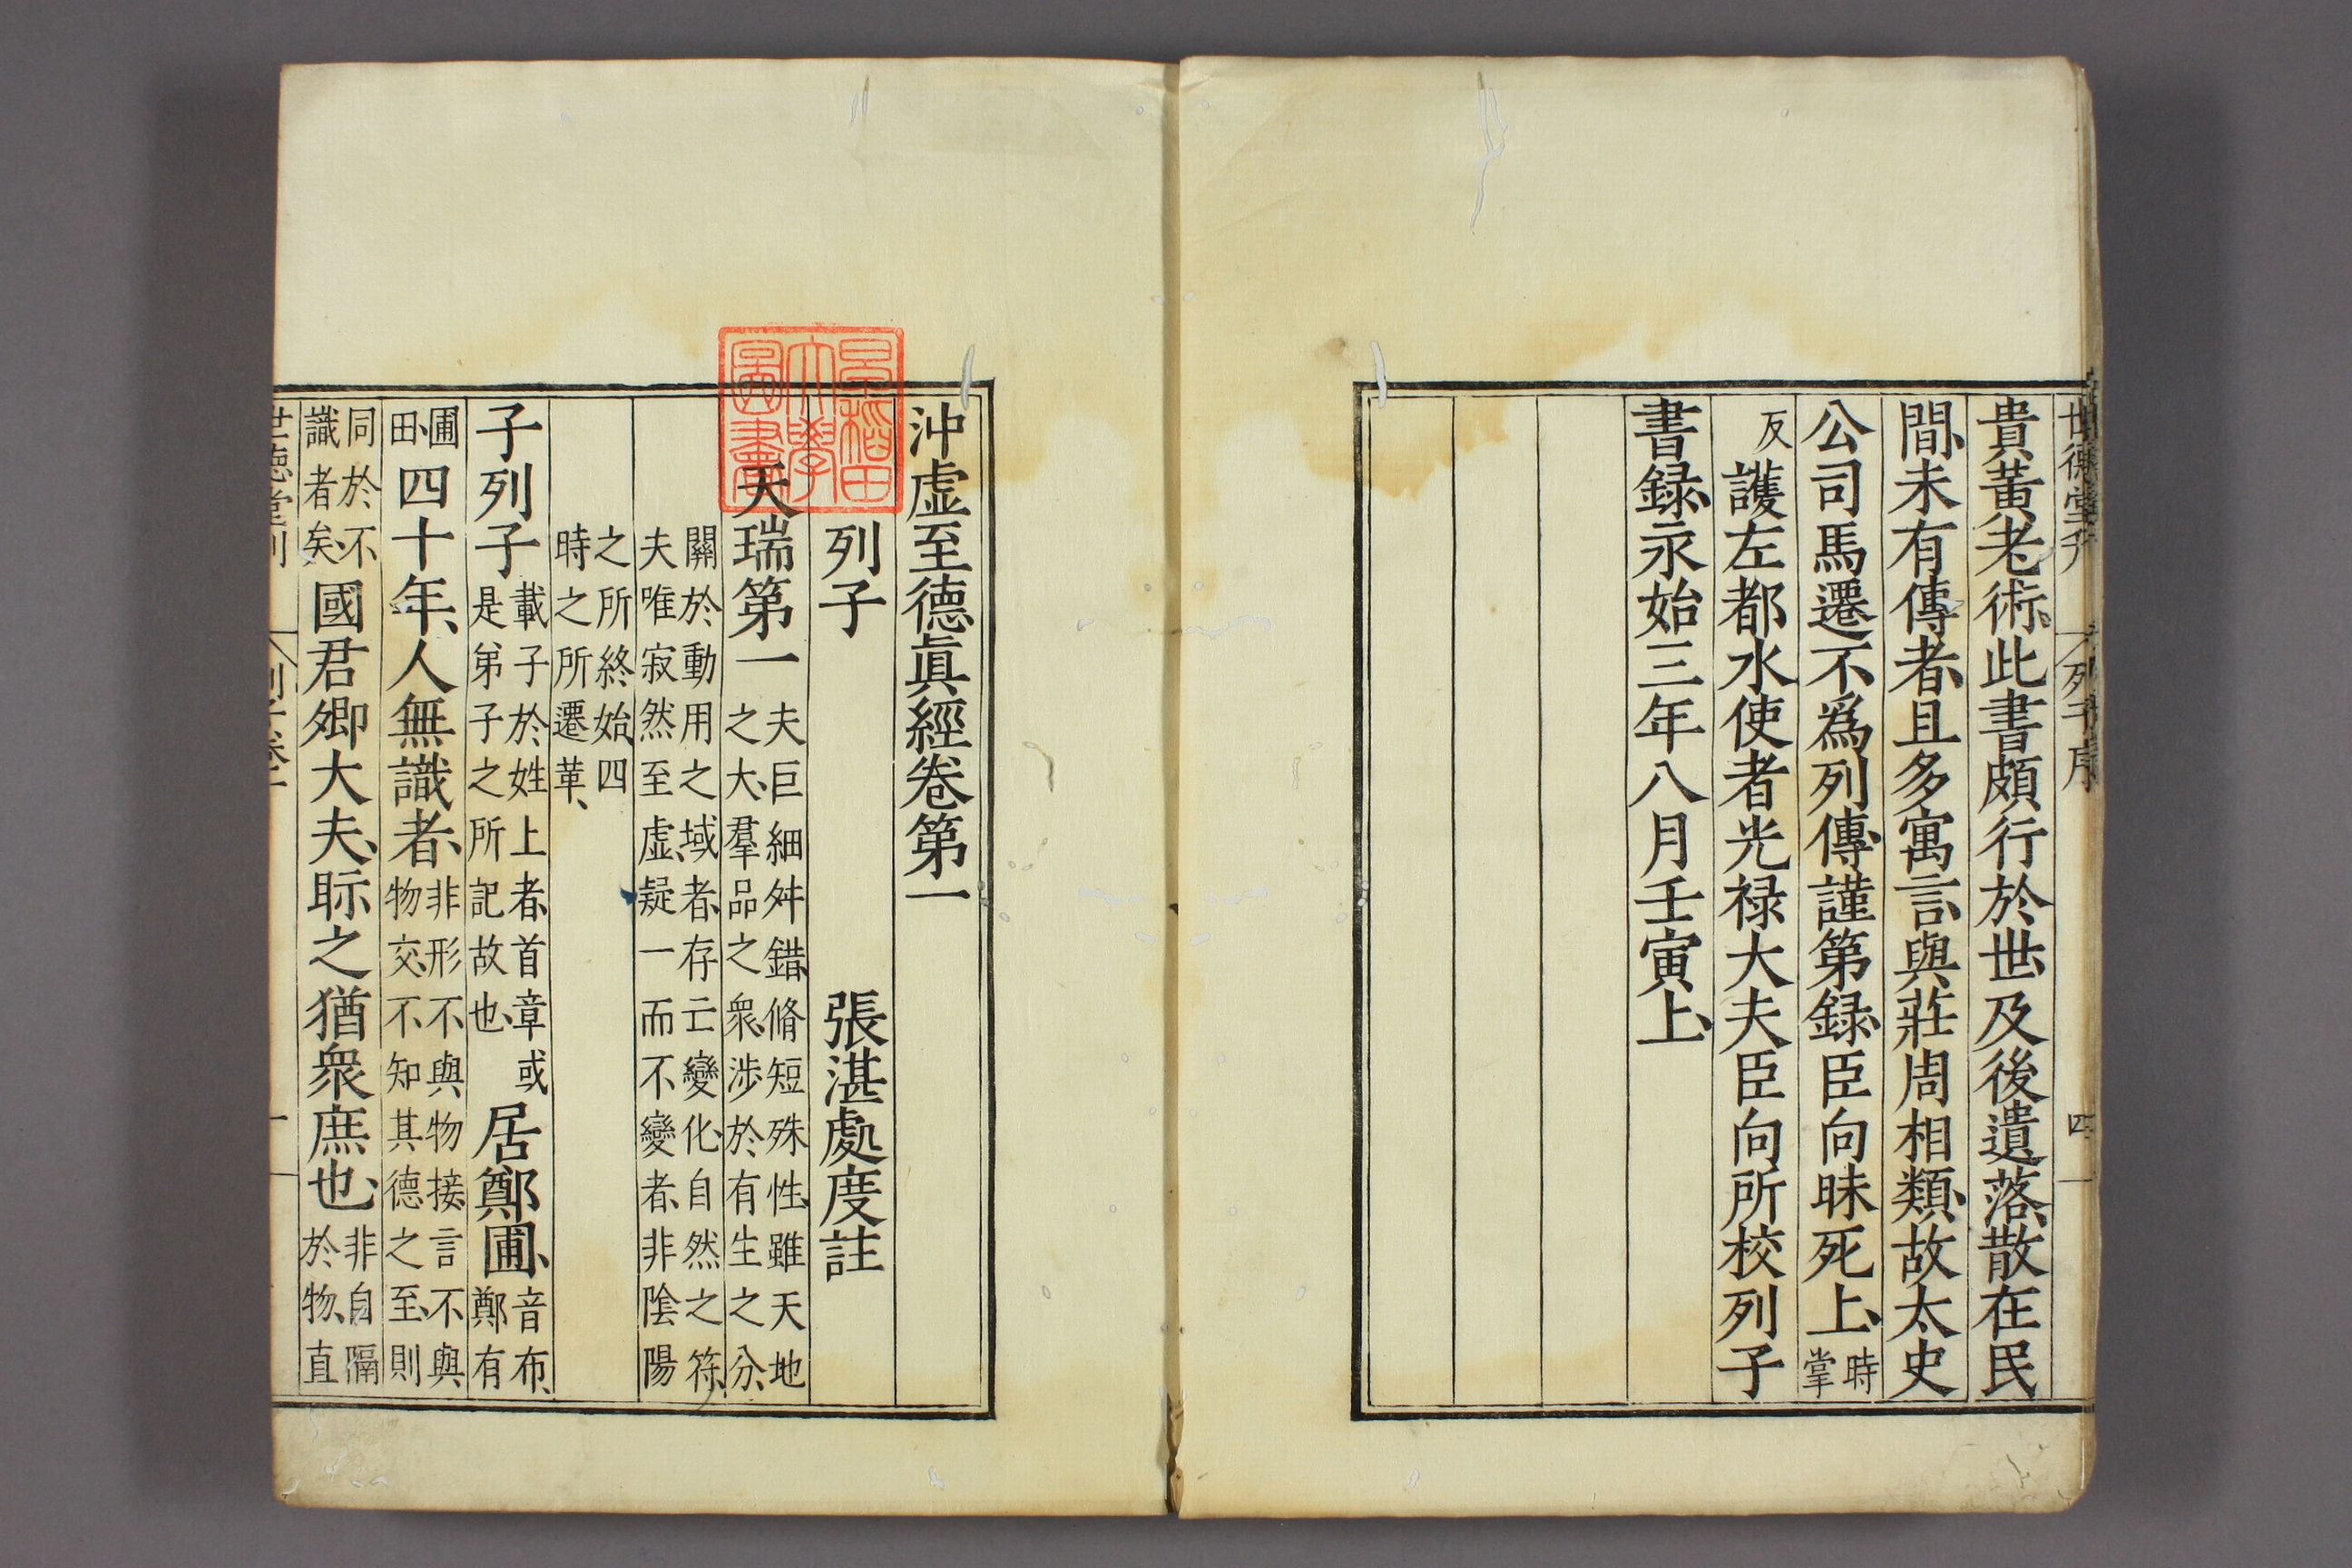 世德堂刊 列子序 四
貴黃老術此書頗行於世及後遺落散在民
間未有傳者且多寓言與莊周相類故太史
公司馬遷不爲列傳謹第録臣向昧死上時掌
反護左都水使者光禄大夫臣向所校列子
書録永始三年八月壬寅上
沖虚至德眞經卷第一
列子 張湛處度註
天瑞第一夫巨細舛錯脩短殊性雖天地
之大羣品之衆涉於有生之分
關於動用之域者存亡變化自然之符
夫唯寂然至虚疑一而不變者非陰陽
之所終始四
時之所遷革
子列子載子於姓上者首章或是弟子之所記故也居鄭圃音布鄭有
圃田四十年人無識者非形不與物接言不與物交不知其德之至則
同於不識者矣國君卿大夫眎之猶衆庶也非自隔於物直
世德堂刊 列子卷一 一
早稻田大學圖書